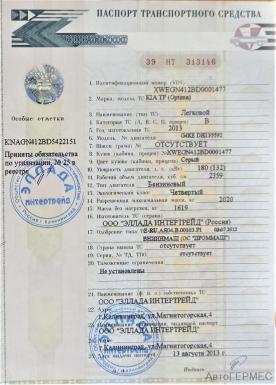 ПАСПОРТ ТРАНСПОРТНОГО СРЕДСТВА
39 НТ 313146
Особые отметки
KNAGN412BD5422151
Приняты обязательства
по утилизации, № 25 в
реестре
ЭЛЛАДА
ИНТЕРТРЕЙД
1. Идентификационный номер (VIN) XWEGN412BD0001477
2. Марка, модель ТС KIA TF (Optima)
3. Наименование (тип ТС) Легковой
4. Категория ТС (А, В, С, D, прицеп) B
5. Год изготовления ТС 2013
6. Модель, № двигателя G4KE
7. Шасси (рама) № ОТСУТСТВУЕТ
8. Кузов (кабина, прицеп) № XWEGN412BD0001477
9. Цвет кузова (кабины, прицепа) Серый
180 (132)
11. Рабочий объем двигателя, куб. см 2359
12. Тип двигателя Бензиновый
Четвертый
14. Разрешенная максимальная масса, кг 2020
15. Масса без нагрузки, кг 1619
16. Изготовитель ТС (страна)
ООО "ЭЛЛАДА ИНТЕРТРЕЙД" (Россия)
17. Одобрение типа ТС №
18. Страна вывоза ТС отсутствует
19. Серия, № ТД, ТПО отсутствует
20. Таможенные ограничения
Не установлены
ООО "ЭЛЛАДА ИНТЕРТРЕЙД"
22. Адрес
г.Калининград, ул.Магнитогорская, 4
ООО "ЭЛЛАДА ИНТЕРТРЕЙД"
24. Адрес
г.Калининград, ул.Магнитогорская, 4
25. Дата выдачи паспорта 13 августа 2013 г.
Подпись
АвтоГЕРМЕС